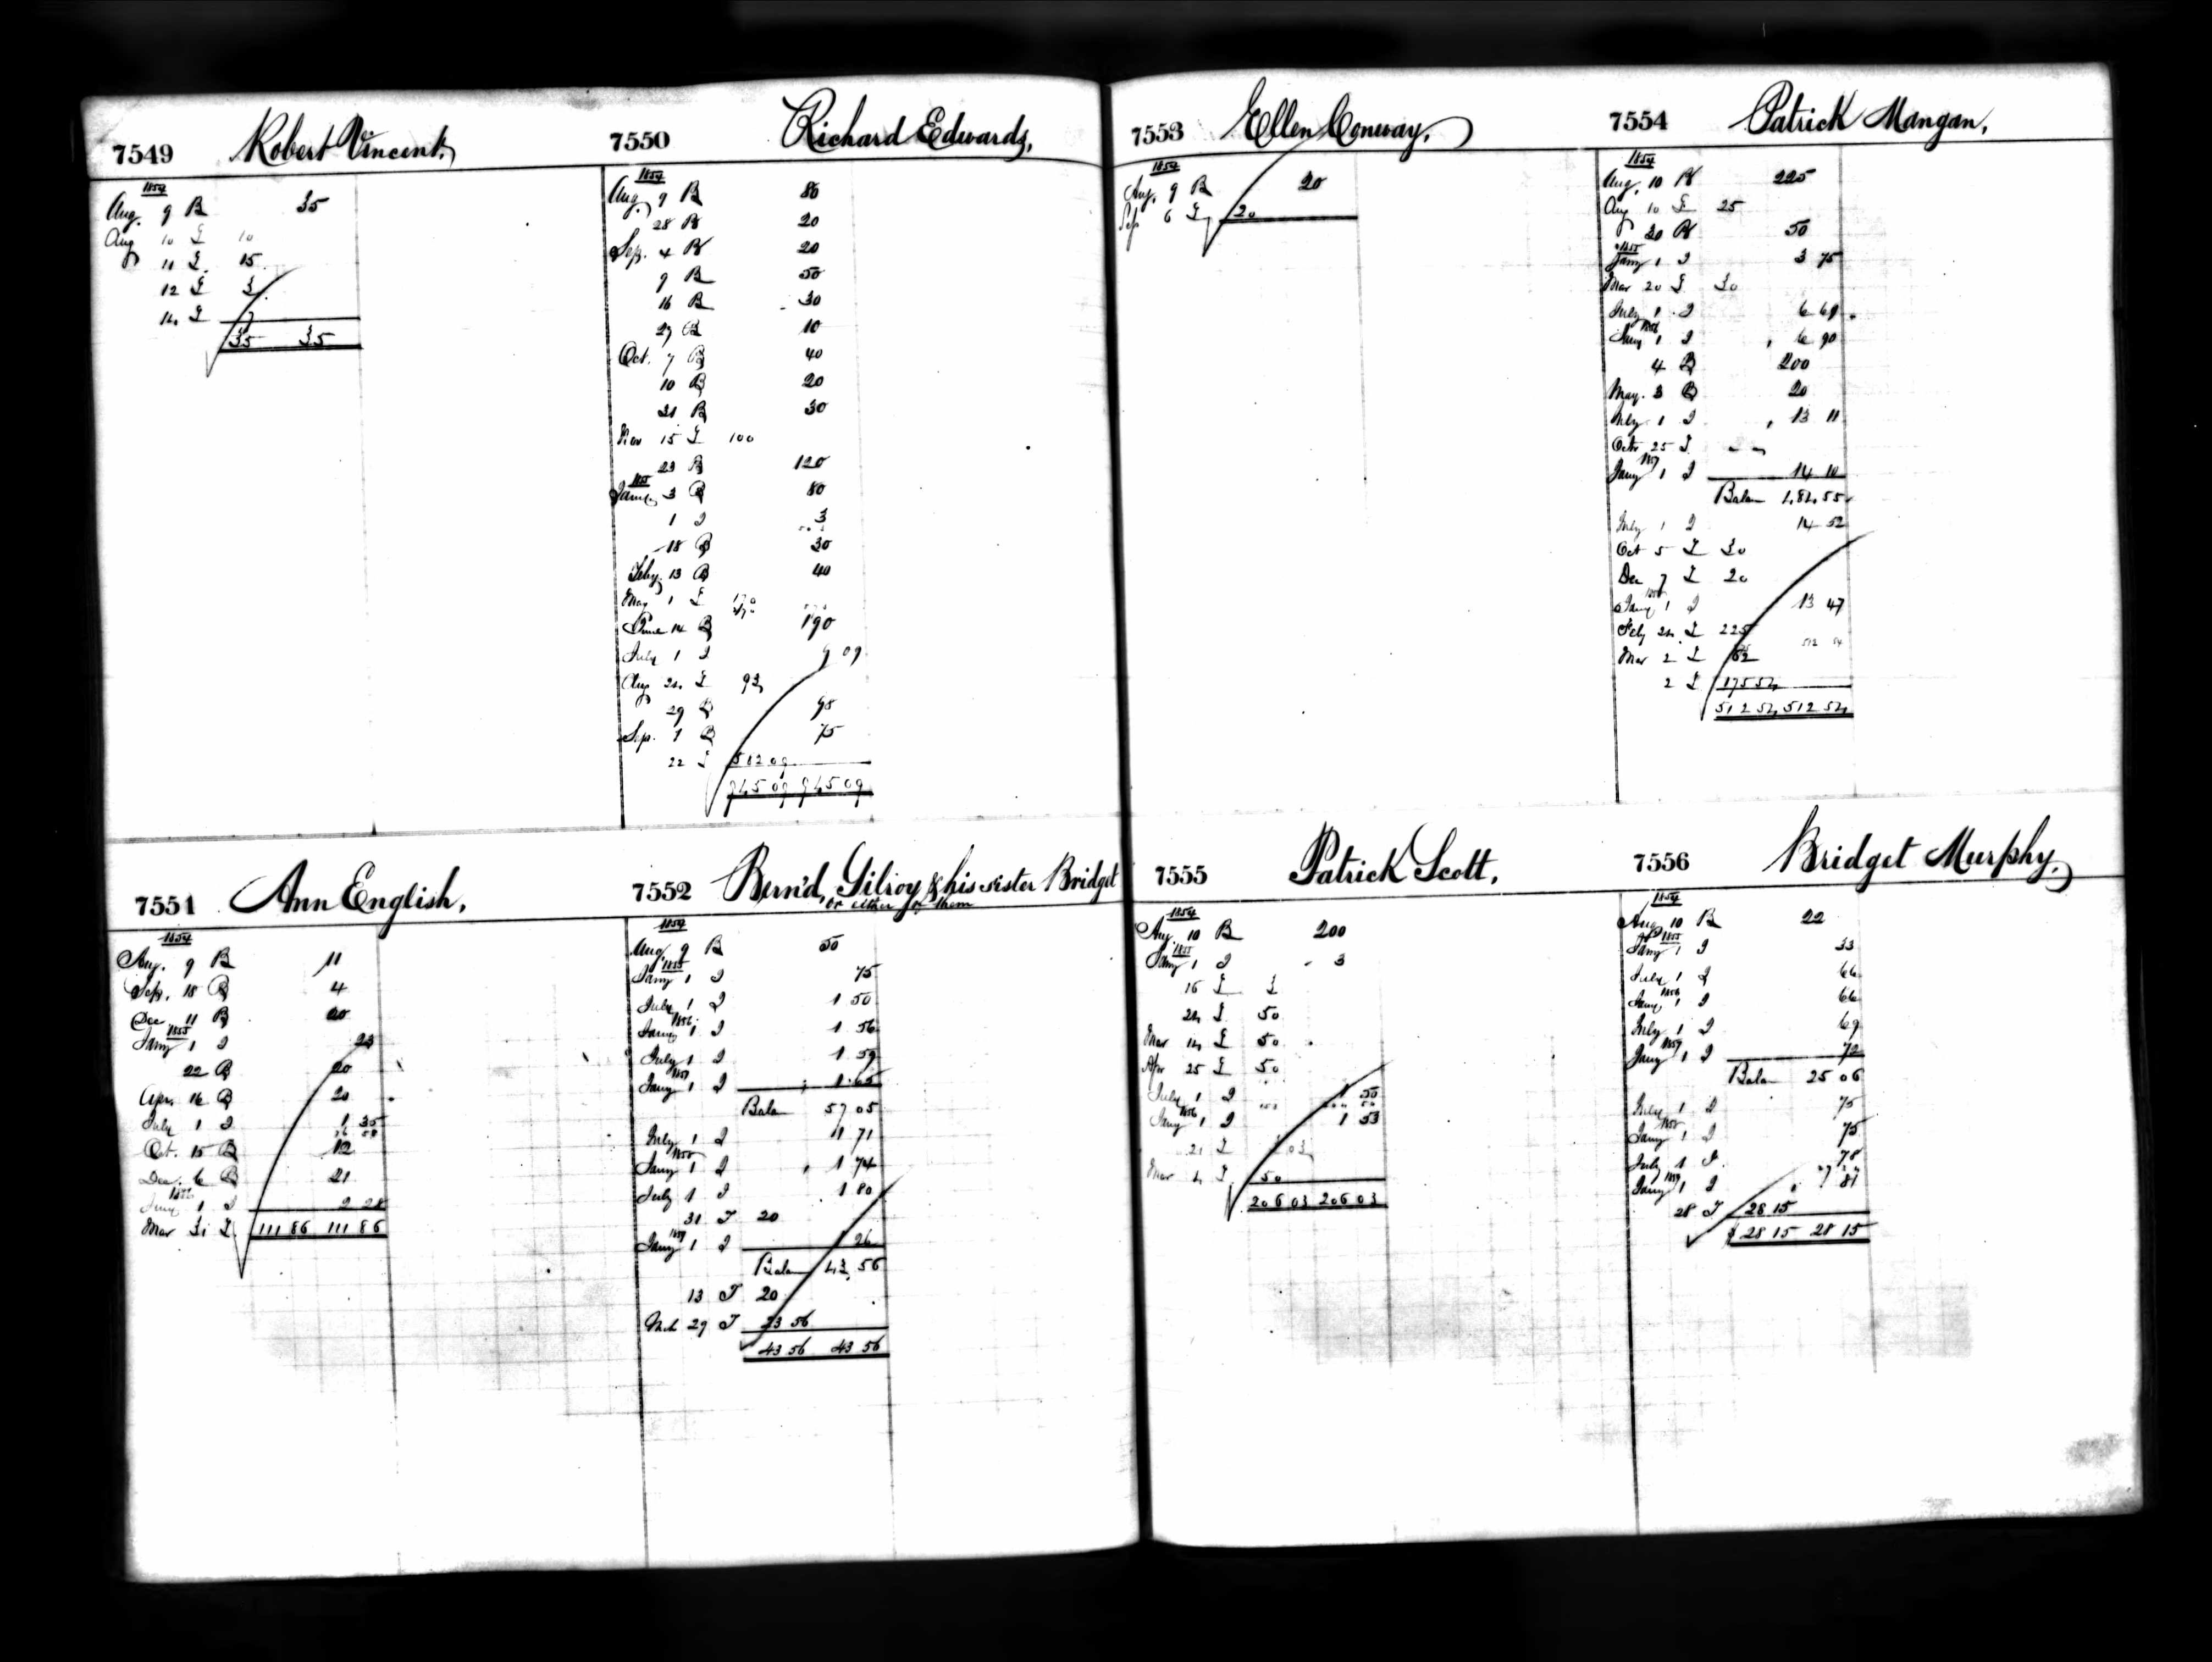 7549 Robert Vincent,
1854
Aug. 9 B 35
Aug 10 £ 10
11 £ 15
12 £ 3
14 £ 7
35 35
7550 Richard Edwards,
1854
Aug. 9 B 80
28 B 20
Sep. 4 B 20
9 B 50
16 B 30
27 B 10
Oct. 7 B 40
10 B 20
21 B 30
Nov 15 £ 100
23 B 120
1855
Jany. 3 B 80
1 I 3
18 B 30
Feby. 13 B 40
May 1 £ 170
June 14 B 190
July 1 I 9 09
Aug 24 £ 93
29 B 98
Sep. 1 B 75
22 £ 582 09
945 09 945 09
7551 Ann English,
1854
Aug. 9 B 11
Sep. 18 B 4
Dec. 11 B 20
1855
Jany 1 I 23
22 B 20
Apr. 16 B 20
July 1 I 1 35
Oct. 15 B 12
Dec. 6 B 21
1856
Jany 1 I 2 28
Mar 31 £ 111 86 111 86
7552 Bern'd, Gilroy & his sister Bridget
or either of them
1854
Aug. 9 B 50
1855
Jany 1 I 75
July 1 I 1 50
1856
Jany 1 I 1 56
July 1 I 1 59
1857
Jany 1 I 1 65
Balan 57 05
July 1 I 1 71
1858
Jany 1 I 1 74
July 1 I 1 80
31 T 20
1859
Jany 1 I 1 26
Balan 43 56
13 T 20
Mch 29 T 23 56
43 56 43 56
7553 Ellen Conway,
1854
Aug. 9 B 20
Sep 6 £ 20
7554 Patrick Mangan,
1854
Aug. 10 B 225
Aug 10 £ 25
30 B 50
1855
Jany 1 I 3 75
Mar 20 £ 30
July 1 I 6 69
1856
Jany 1 I 6 90
4 B 200
May. 3 B 20
July 1 I 13 11
Octr 25 £
1857
Jany 1 I 14 10
Balan 484 55
July 1 I 14 52
Oct 5 £ 30
Dec 7 £ 20
1858
Jany 1 I 13 47
Feby 24 £ 225
Mar 2 £ 62
2 £ 175 54
512 54 512 54
7555 Patrick Scott,
1854
Aug. 10 B 200
1855
Jany 1 I 3
16 £ 3
24 £ 50
Mar 14 £ 50
Apr 25 £ 50
July 1 I 1 50
1856
Jany 1 I 1 53
21 £ 3 03
Mar 4 £ 50
206 03 206 03
7556 Bridget Murphy,
1854
Aug. 10 B 22
1855
Jany 1 I 33
July 1 I 66
1856
Jany 1 I 66
July 1 I 69
1857
Jany 1 I 72
Balan 25 06
July 1 I 75
1858
Jany 1 I 75
July 1 I 78
1859
Jany 1 I 81
28 T 28 15
$ 28 15 28 15